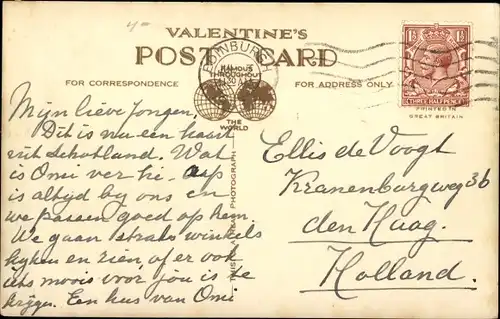 VALENTINE'S
POST CARD
EDINBURGH
FAMOUS
THROUGHOUT
THE
WORLD
FOR CORRESPONDENCE
FOR ADDRESS ONLY.
THREE HALF PENCE
PRINTED IN
GREAT BRITAIN
THIS IS A REAL PHOTOGRAPH
Mijn lieve Jongen,
Dit is nu een kaart
uit Schotland. Wat
is Omi ver hè. Aap
is altijd bij ons en
we passen goed op hem.
We gaan straks winkels
kijken en zien, of er ook
iets moois voor jou is te
krijgen. Een kus van Omi.
Ellis de Voogt
Kranenburgweg 36
den Haag.
Holland.